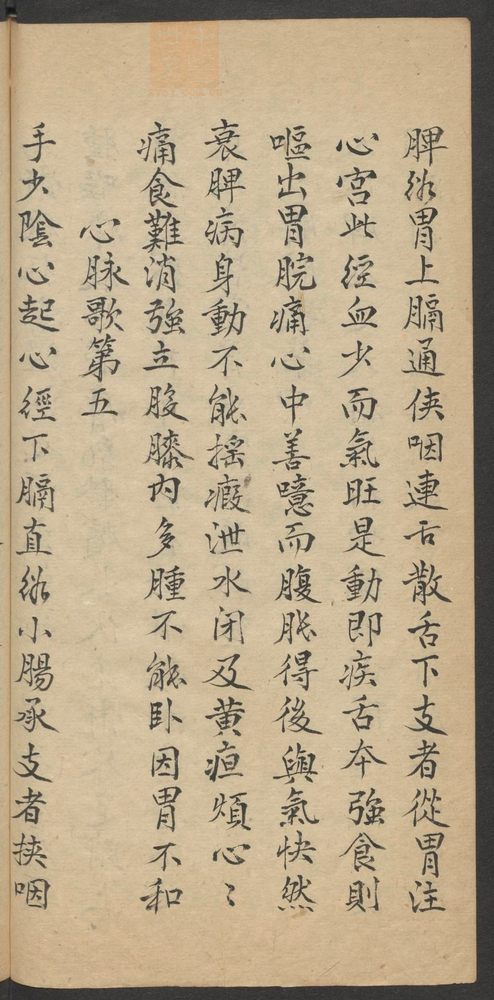 脾絡胃上膈通侠咽連舌散舌下支者從胃注
心宮此經血少而氣旺是動即疾舌夲強食則
嘔出胃脘痛心中善噫而腹脹得後與氣快然
衰脾病身動不能摇瘕泄水闭及黄疸煩心〻
痛食難消強立股膝内多腫不能卧因胃不和
心脉歌第五
手少陰心起心經下膈直絡小腸承支者挟咽